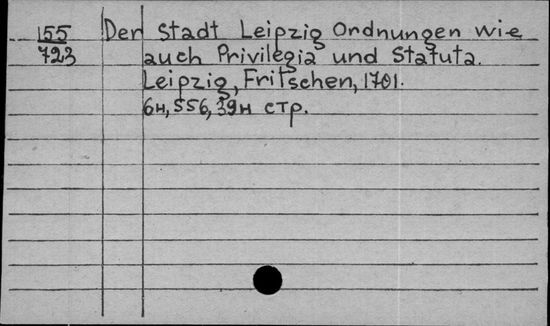 155 Der Stadt Leipzig Ordnungen wie
723 auch Privilegia und Statuta.
Leipzig, Fritschen, 1701.
6н, 556, 39н стр.